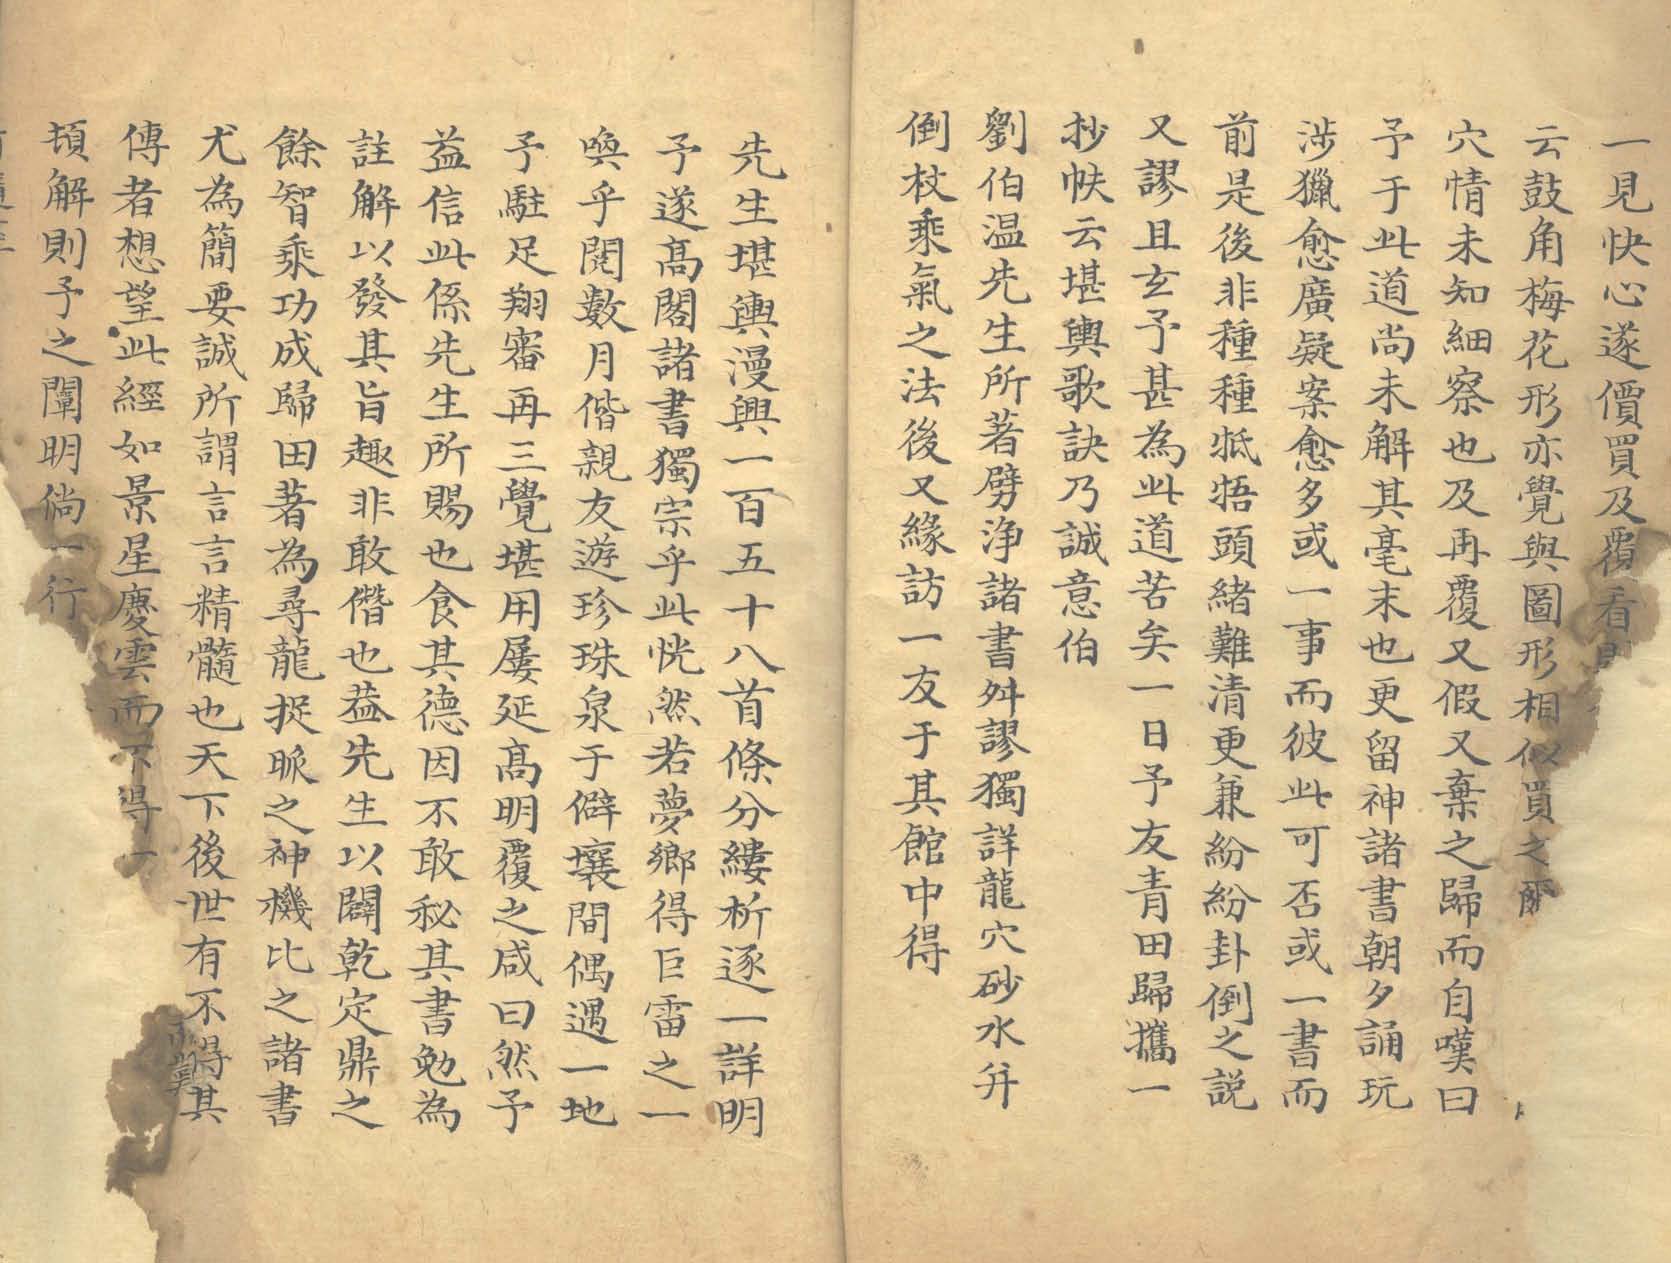 一見快心遂價買及覆看
云鼓角梅花形亦覺與圖形相似買之爾
穴情未知細察也及再覆又假又棄之歸而自嘆曰
予于此道尚未解其毫末也更留神諸書朝夕誦玩
涉獵愈廣疑案愈多或一事而彼此可否或一書而
前是後非種種牴牾頭緒難清更兼紛紛卦倒之説
又謬且玄予甚為此道苦矣一日予友青田歸攜一
抄帙云堪輿歌訣乃誠意伯
劉伯温先生所著劈浄諸書舛謬獨詳龍穴砂水并
倒杖乘氣之法後又緣訪一友于其館中得
先生堪輿漫興一百五十八首條分縷析逐一詳明
予遂髙閣諸書獨宗乎此恍然若夢鄉得巨雷之一
喚乎閱數月偕親友遊珍珠泉于僻壤間偶遇一地
予駐足翔審再三覺堪用屢延髙明覆之咸曰然予
益信此係先生所賜也食其德因不敢秘其書勉為
註解以發其旨趣非敢僭也葢先生以闢乾定鼎之
餘智乘功成歸田著為尋龍捉脈之神機比之諸書
尤為簡要誠所謂言言精髓也天下後世有不得其
傳者想望此經如景星慶雲而不得一
頓解則予之闡明倘一行